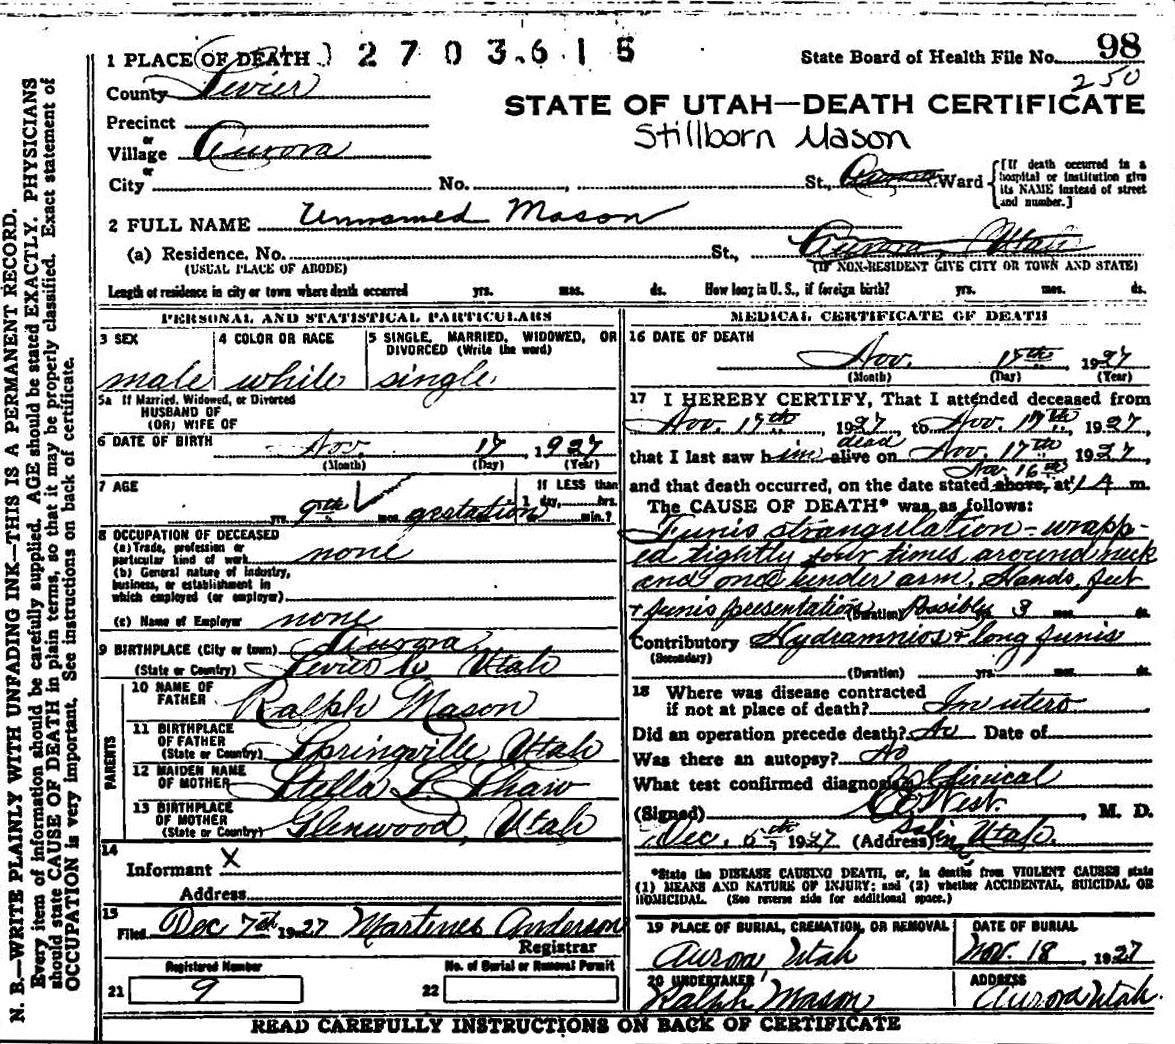 1 PLACE OF DEATH 2703615 State Board of Health File No. 98
250
County Sevier
STATE OF UTAH—DEATH CERTIFICATE
Precinct
Stillborn Mason
or
Village Aurora
or
City No. , St., Ward
[If death occurred in a hospital or institution give its NAME instead of street and number.]
2 FULL NAME Unnamed Mason
(a) Residence, No. St., Aurora, Utah
(USUAL PLACE OF ABODE) (IF NON-RESIDENT GIVE CITY OR TOWN AND STATE)
Length of residence in city or town where death occurred yrs. mos. ds. How long in U. S., if foreign birth? yrs. mos. ds.
PERSONAL AND STATISTICAL PARTICULARS
3 SEX 4 COLOR OR RACE 5 SINGLE, MARRIED, WIDOWED, OR
DIVORCED (Write the word)
male white single
5a If Married, Widowed, or Divorced
HUSBAND OF
(OR) WIFE OF
6 DATE OF BIRTH Nov. 17, 1927
(Month) (Day) (Year)
7 AGE If LESS than
1 day, hrs.
yrs. 9th mos. gestation min.?
8 OCCUPATION OF DECEASED
(a) Trade, profession or
particular kind of work none
(b) General nature of industry,
business, or establishment in
which employed (or employer)
(c) Name of Employer none
9 BIRTHPLACE (City or town) Aurora
(State or Country) Sevier Co Utah
PARENTS
10 NAME OF
FATHER Ralph Mason
11 BIRTHPLACE
OF FATHER
(State or Country) Springville, Utah
12 MAIDEN NAME
OF MOTHER Stella L. Shaw
13 BIRTHPLACE
OF MOTHER
(State or Country) Glenwood, Utah
14
Informant X
Address
15
Filed Dec 7th 1927 Martines Anderson
Registrar
Registered Number No. of Burial or Removal Permit
21 9 22
MEDICAL CERTIFICATE OF DEATH
16 DATE OF DEATH
Nov. 17th 1927
(Month) (Day) (Year)
17 I HEREBY CERTIFY, That I attended deceased from
Nov. 17th, 1927, to Nov. 17th, 1927,
dead
that I last saw him alive on Nov. 17th 1927,
Nov 16th
and that death occurred, on the date stated above, at 1 A m.
The CAUSE OF DEATH* was as follows:
Funis strangulation - wrapp-
ed tightly four times around neck
and once under arm. Hands, feet
+ funis presentation (Duration) Possibly 3 mos. ds.
Contributory Hydramnios + long funis
(Secondary)
(Duration) yrs. mos. ds.
18 Where was disease contracted
if not at place of death? In utero
Did an operation precede death? No Date of
Was there an autopsy? No
What test confirmed diagnosis? Clinical
(Signed) West. , M. D.
Dec. 6th, 1927 (Address) Salina, Utah.
*State the DISEASE CAUSING DEATH, or, in deaths from VIOLENT CAUSES state
(1) MEANS AND NATURE OF INJURY; and (2) whether ACCIDENTAL, SUICIDAL OR
HOMICIDAL. (See reverse side for additional space.)
19 PLACE OF BURIAL, CREMATION, OR REMOVAL DATE OF BURIAL
Aurora, Utah Nov. 18, 1927
20 UNDERTAKER ADDRESS
Ralph Mason Aurora Utah.
READ CAREFULLY INSTRUCTIONS ON BACK OF CERTIFICATE
N. B.—WRITE PLAINLY WITH UNFADING INK—THIS IS A PERMANENT RECORD.
Every item of information should be carefully supplied. AGE should be stated EXACTLY. PHYSICIANS
should state CAUSE OF DEATH in plain terms, so that it may be properly classified. Exact statement of
OCCUPATION is very important. See instructions on back of certificate.